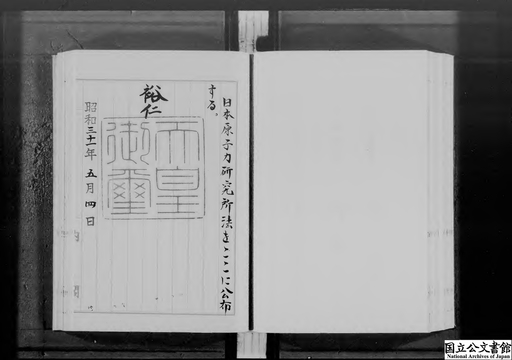 日本原子力研究所法をここに公布
する。
裕仁
天皇
御璽
昭和三十一年五月四日
国立公文書館
National Archives of Japan